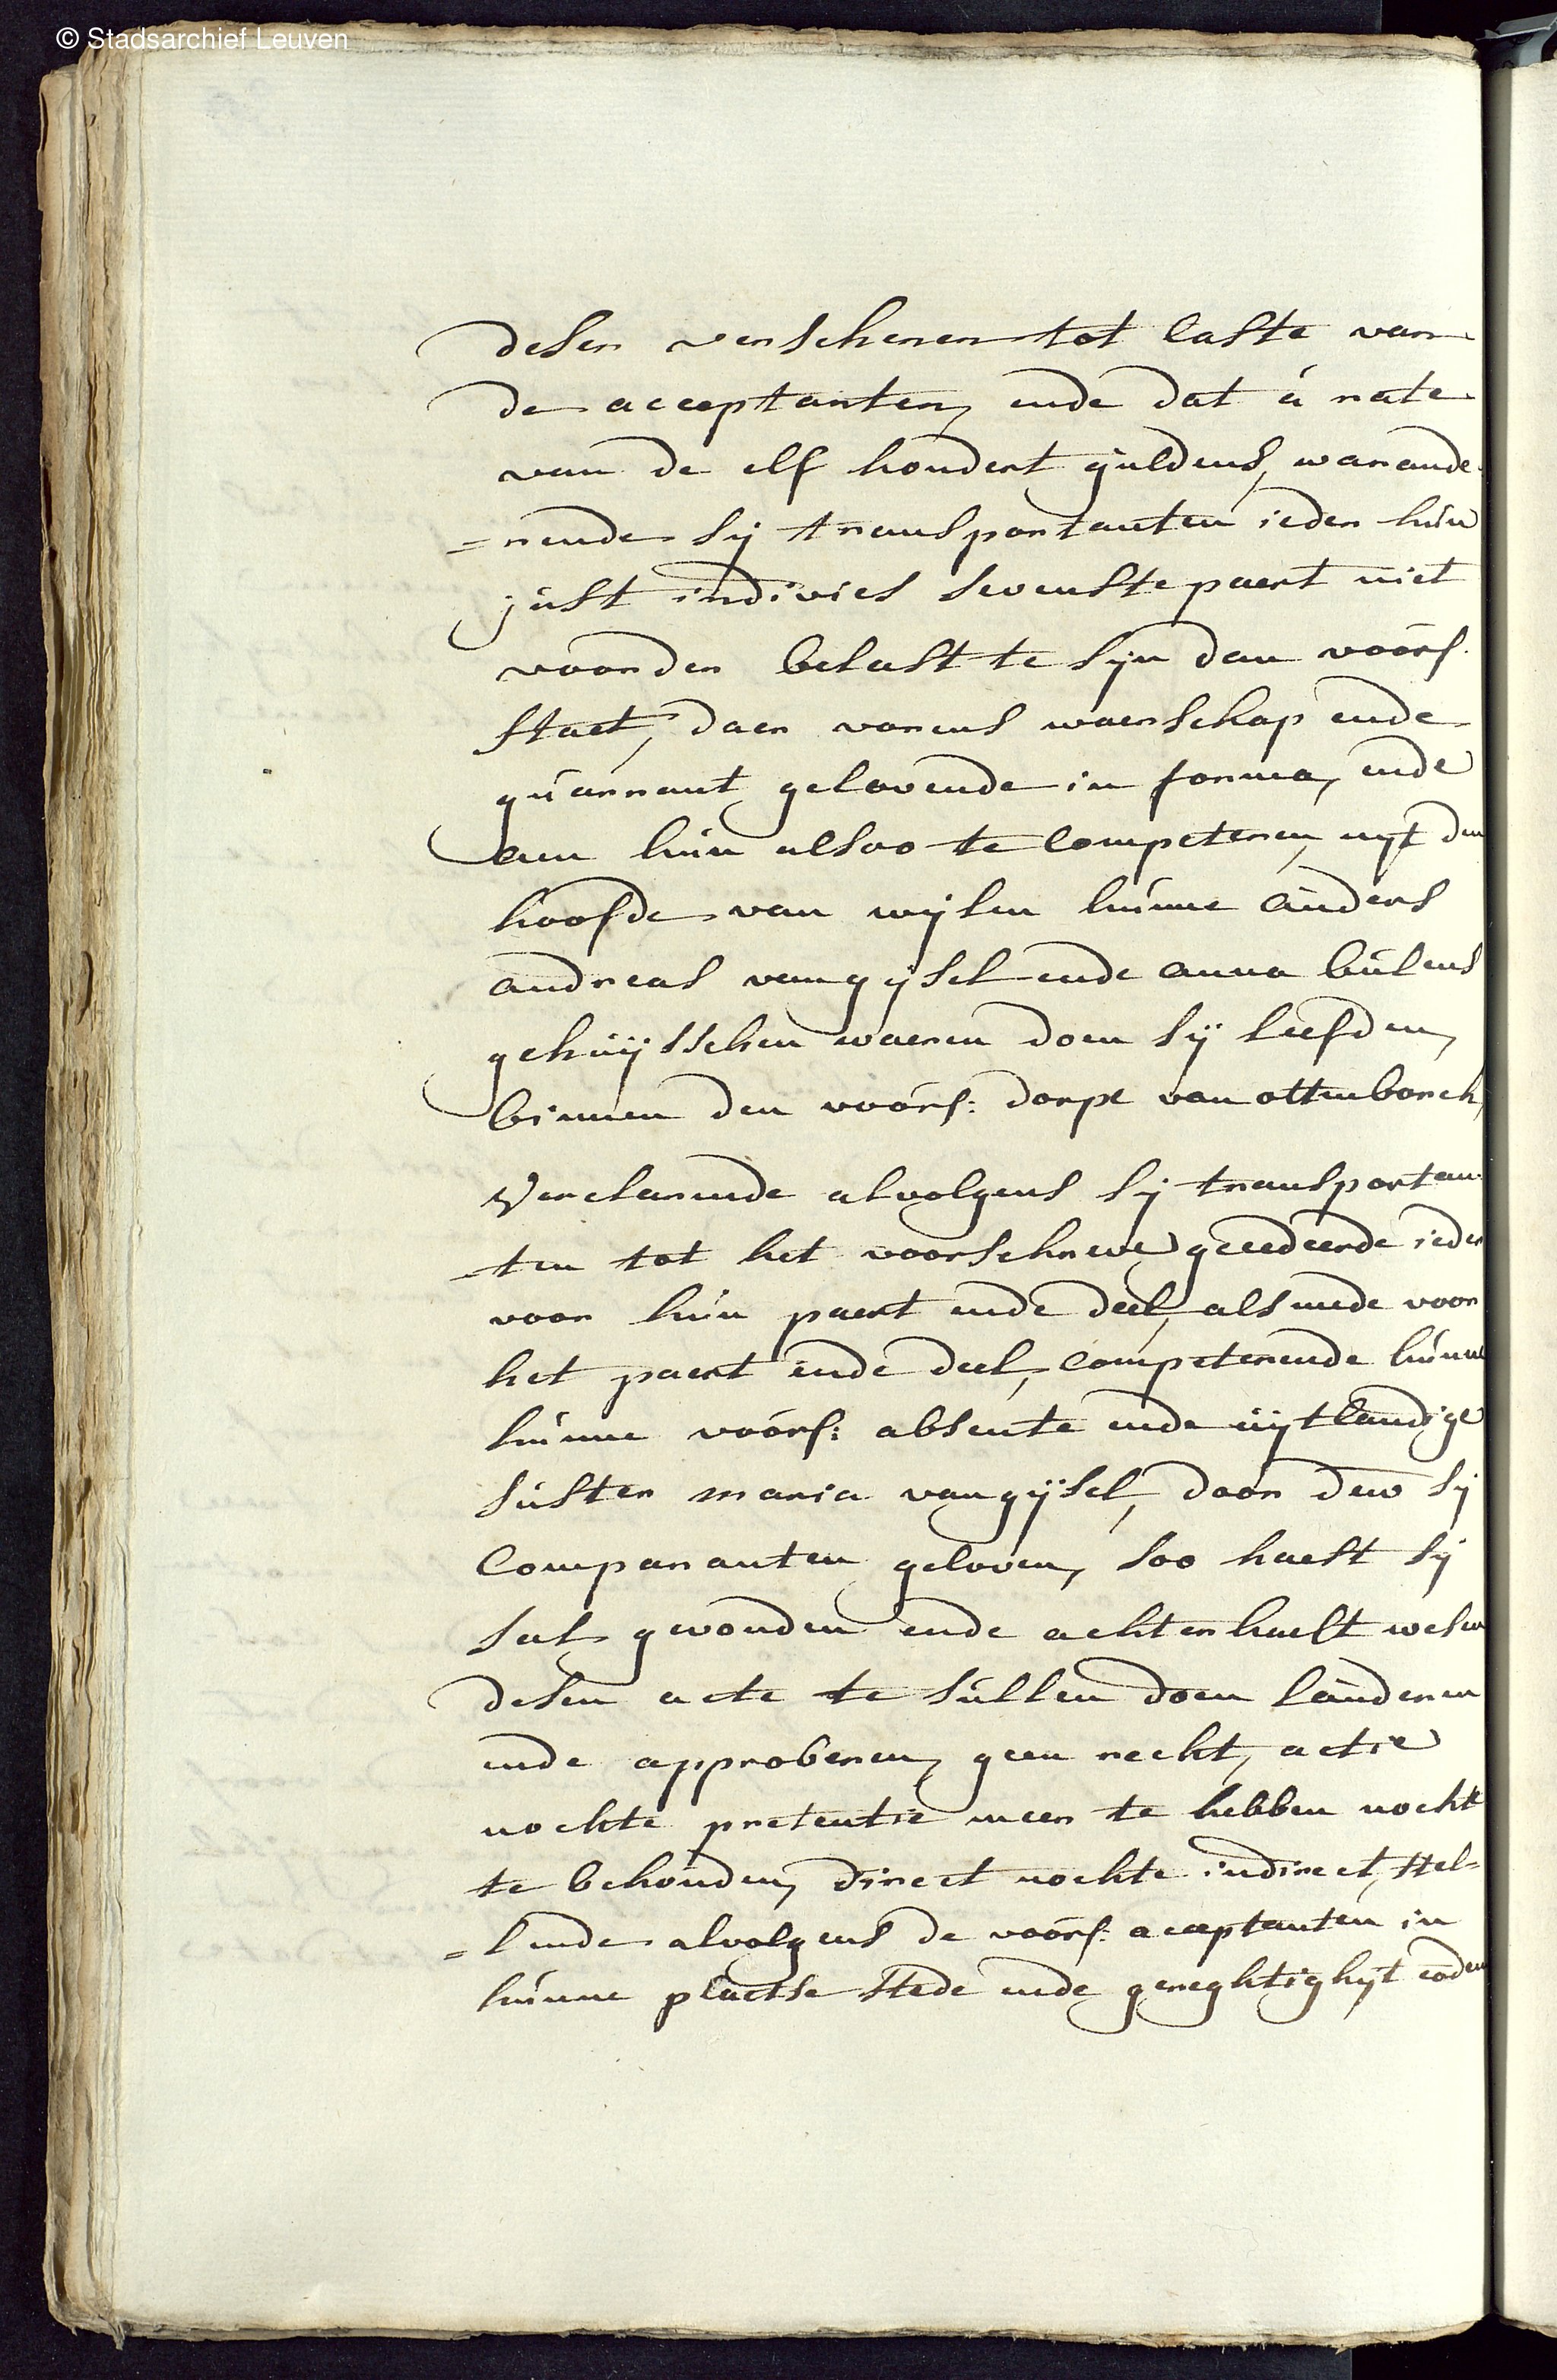 © Stadsarchief Leuven
desen verschenen tot laste van
de acceptanten, ende dat à rate
van de elf hondert guldens, warande-
=rende sij transportanten ieder hun
just indivies sevenste paert niet
voorder belast te sijn dan voors.
staet, daer vorens waerschap ende
quarrant gelovende in forma, ende
aen hun alsoo te competeren, uyt den
hoofde van wijlen hunne auders
andreas van gijsel ende anna bulens
gehuijsschen waeren doen sij leefden,
binnen den voors: dorpe van ottenborch,
Verclarende alvolgens sij transportan-
ten tot het voorschreve gecedeerde ieder
voor hun paert ende deel, als mede voor
het paert ende deel, competerende hunne
hunne voors: absente ende uijtlandige
suster maria van gijsel, door dew sij
Comparanten geloven, soo haest sij
sal gevonden ende achterhaelt wesen
desen acte te sullen doen lauderen
ende approberen, geen recht, actie
nochte pretentie meer te hebben nocht
te behouden, direct nochte indirect, stel-
=lende alvolgens de voors. acceptanten in
hunne plaetse stede ende gereghtighijt eodem